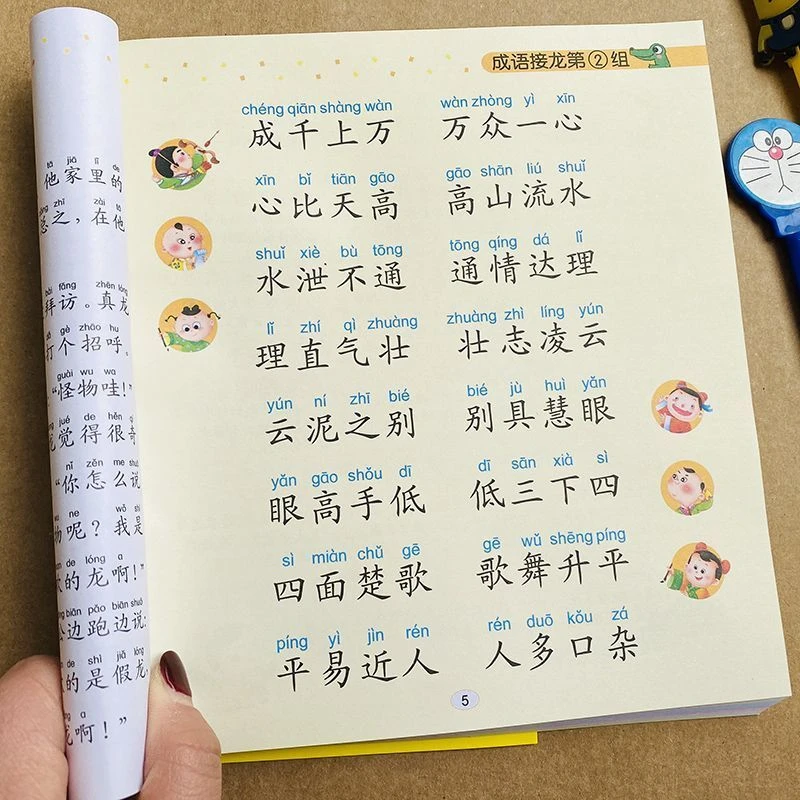 tā jiā lǐ de
他家里的
zhī zài tā
总之，在他
bài fǎng zhēn lóng
拜访。真龙
gè zhāo hu
打个招呼。
guài wu wa
“怪物哇！”
jué de hěn
觉得很奇
nǐ zěn me shuō
“你怎么说
ne wǒ shì
物呢？我是
de lóng a
的龙啊！”
biān pǎo biān shuō
边跑边说：
de shì jiǎ lóng
的是假龙，
a
龙啊！”
成语接龙第②组
chéng qiān shàng wàn wàn zhòng yì xīn
成千上万 万众一心
xīn bǐ tiān gāo gāo shān liú shuǐ
心比天高 高山流水
shuǐ xiè bù tōng tōng qíng dá lǐ
水泄不通 通情达理
lǐ zhí qì zhuàng zhuàng zhì líng yún
理直气壮 壮志凌云
yún ní zhī bié bié jù huì yǎn
云泥之别 别具慧眼
yǎn gāo shǒu dī dī sān xià sì
眼高手低 低三下四
sì miàn chǔ gē gē wǔ shēng píng
四面楚歌 歌舞升平
píng yì jìn rén rén duō kǒu zá
平易近人 人多口杂
5